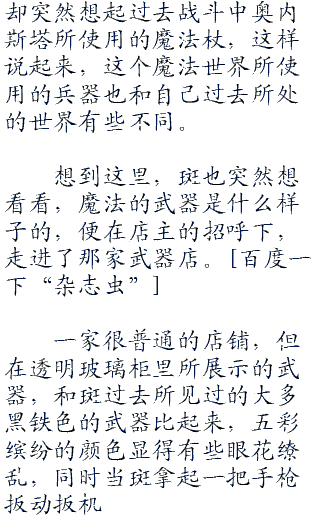 却突然想起过去战斗中奥内
斯塔所使用的魔法杖，这样
说起来，这个魔法世界所使
用的兵器也和自己过去所处
的世界有些不同。
想到这里，斑也突然想
看看，魔法的武器是什么样
子的，便在店主的招呼下，
走进了那家武器店。[百度一
下“杂志虫”]
一家很普通的店铺，但
在透明玻璃柜里所展示的武
器，和斑过去所见过的大多
黑铁色的武器比起来，五彩
缤纷的颜色显得有些眼花缭
乱，同时当斑拿起一把手枪
扳动扳机